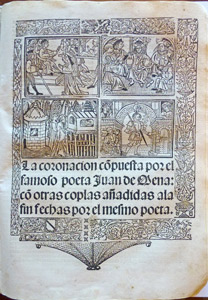 La coronacion cõpuesta por el
famoso poeta Juan de Mena:
cõ otras coplas añadidas ala
fin fechas por el mesmo poeta.